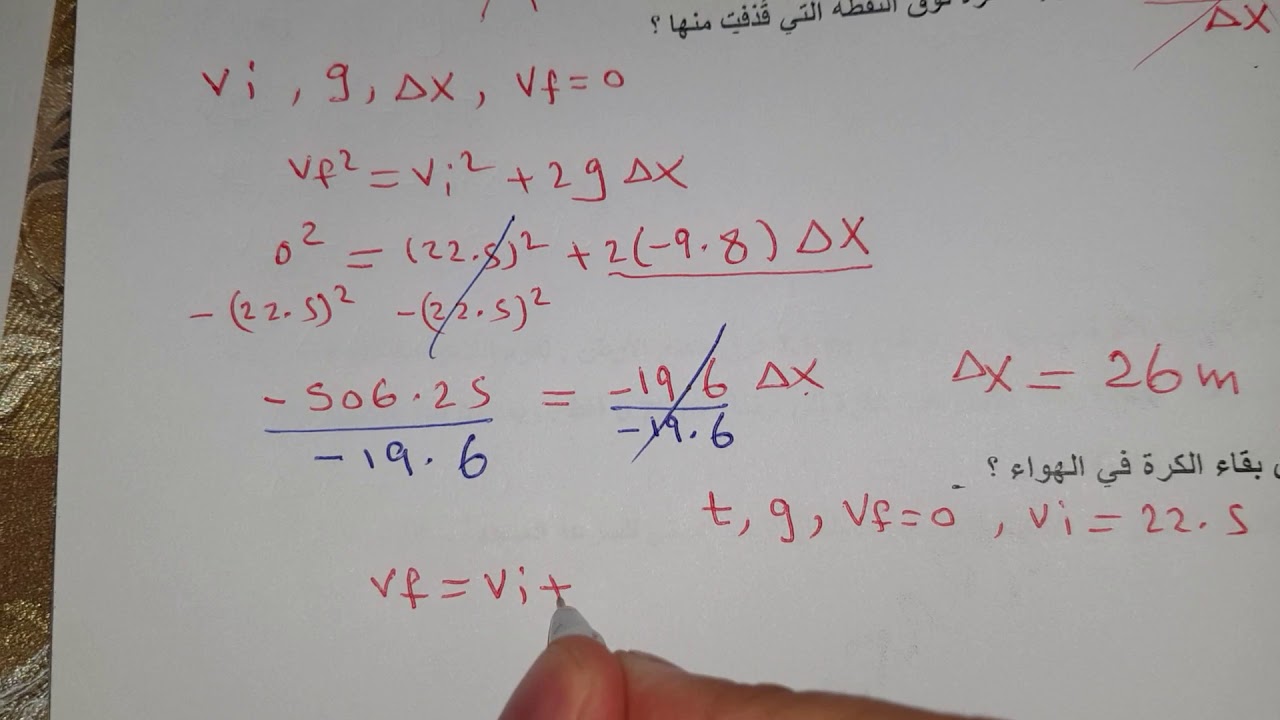 التي قذفت منها ؟
Δx
vi , g , Δx , vf = 0
vf² = vi² + 2g Δx
0² = (22.5)² + 2(-9.8) Δx
-(22.5)² -(22.5)²
-506.25 = -19.6 Δx
-19.6 -19.6
Δx = 26 m
بقاء الكرة في الهواء ؟
t , g , vf = 0 , vi = 22.5
vf = vi +